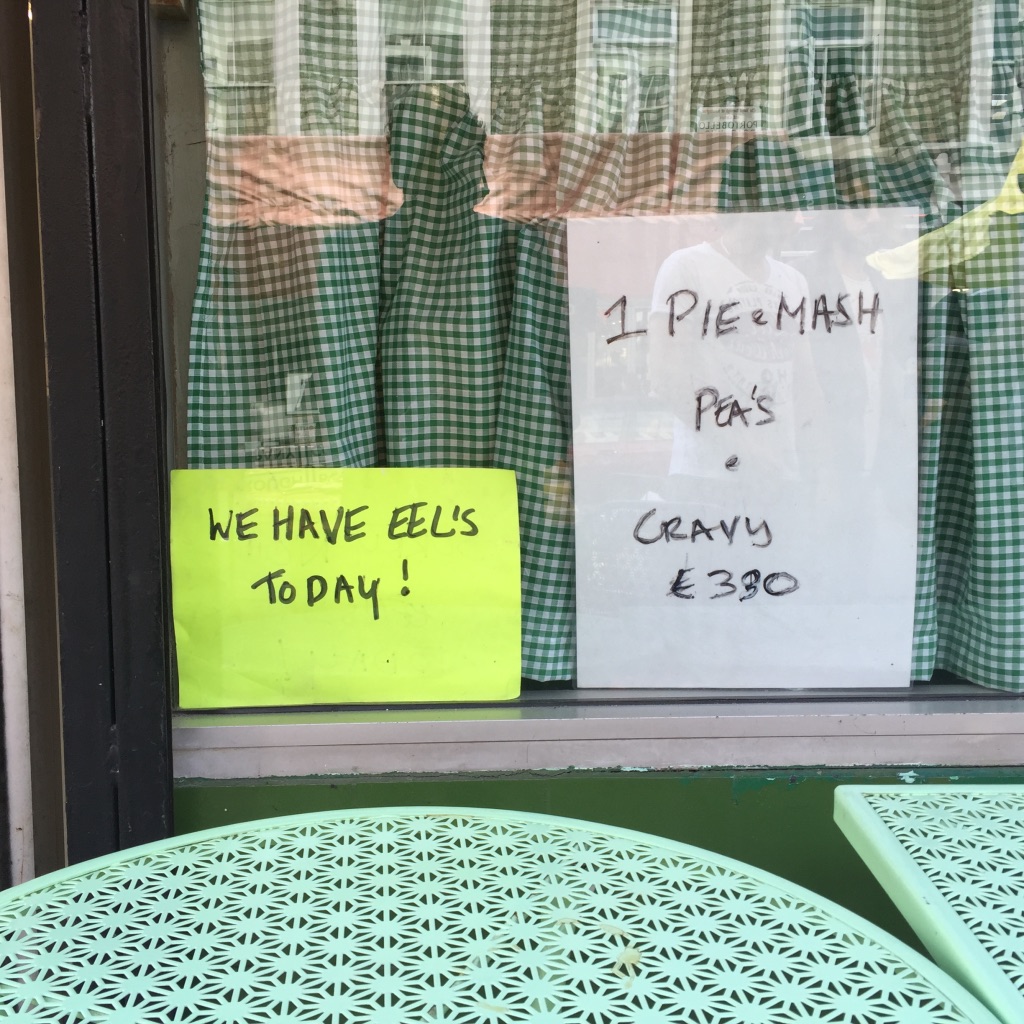 WE HAVE EEL'S
TODAY!
1 PIE e MASH
PEA'S
e
GRAVY
£330
PORTOBELLO